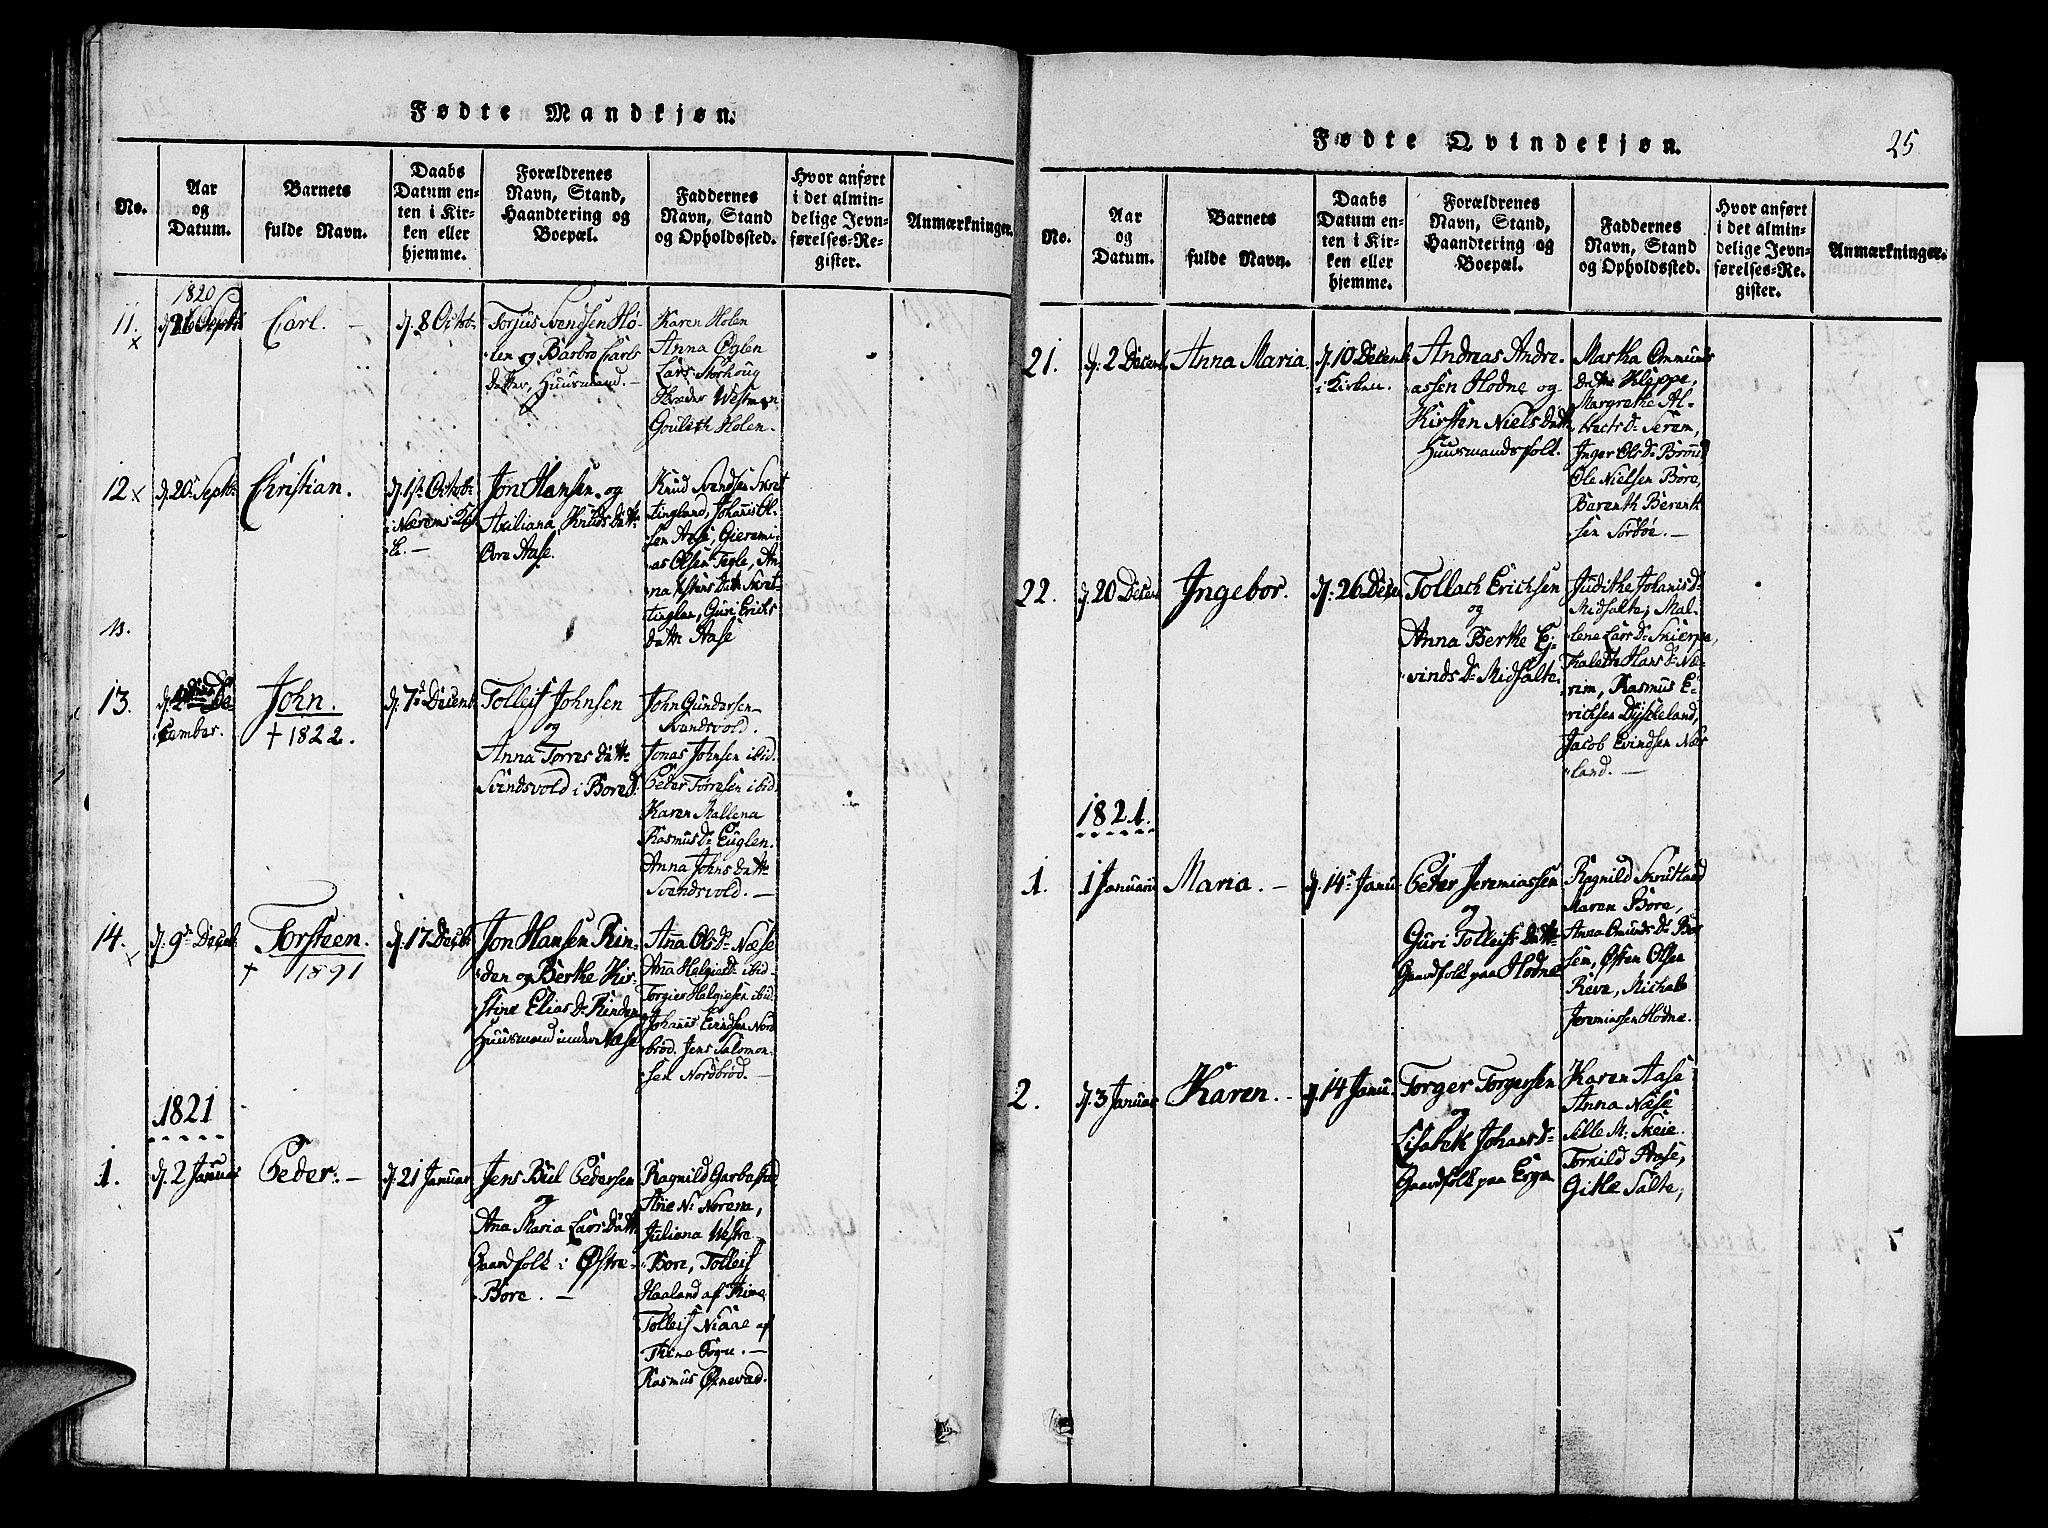 Fødte Mandkjøn.
No.
Aar
og
Datum.
Barnets
fulde Navn.
Daabs
Datum en-
ten i Kir-
ken eller
hjemme.
Forældrenes
Navn, Stand,
Haandtering og
Boepæl.
Faddernes
Navn, Stand
og Opholdssted.
Hvor anført
i det almin-
delige Jevn-
førelses-Re-
gister.
Anmærkninger.
1820
11.
x
d. 26 Septbr
Carl. -
d. 8 Octob.
Torjus Svendsen Hø-
len og Barbro Carls
datter, Huusmand. -
Karen Holen
Anna Øglen
Lars Storhoug
Westmen
Holen.
12 x
d. 20de Septbr
Christian.
d. 1ste Octobr
i Nærems Kir-
ke. -
Jon Hansen og
Axiliana Knuds Datt.
Øvre Aase.
Knud Svendsen Skret
tingland, Johannis Ol-
sen Aase, Gieremi-
as Olsen Tegle, An-
na Datt. Skret-
tingland, Guri Erichs
Datt. Aase
13.
cember.
John.
+ 1822.
d. 7de Decemb.
Tolleif Johnsen
og
Anna Torres Datt.
Svindsvold i Bore
John Gundersen
Svendsvold.
Jonas Johnsen ibid.
Peder Torresen ibid
Karen Mallena
Rasmus Dr Euglen.
Anna Johns Datt.
Svendsvold. -
14.
x
d. 9de Decbr
Torsteen.
+ 1891
d. 17 Decbr
Jon Hansen Rin-
den og Berthe Kir-
stine Elias Dr Rinden
Huusmand under Næse
Anna Ols Dr Næse
Ana Helgies Dr ibid.
Torgier Helgiesen ibid.
Johanis Evindsen Nord
brød. Jens Salomon-
sen Nordbrød. -
1821
1.
d. 2 Januar
Peder. -
d. 21 Januar
Jens Bul Pedersen
og
Ana Maria Lars Datt.
Gaardfolk i Østre
Bore. -
Ragnild Garbostad
Ane N: Norem,
Juliana Westre
Bore, Tolleif
Haaland af Time
Tolleif Niaae af
Time Sogn. -
Rasmus Ørnevad.
Fødte Qvindekjøn.
25
No.
Aar
og
Datum.
Barnets
fulde Navn.
Daabs
Datum en-
ten i Kir-
ken eller
hjemme.
Forældrenes
Navn, Stand,
Haandtering og
Boepæl.
Faddernes
Navn, Stand
og Opholdssted.
Hvor anført
i det almin-
delige Jevn-
førelses-Re-
gister.
Anmærkninger.
21.
d. 2 Decemb.
Anna Maria
d. 10 Decemb.
i Kirken.
Andreas Andre-
assen Hodne og
Kirsten Niels Datt
Huusmandsfolk.
Martha Ommunds
Datter Kleppe,
Margrethe Al-
brects Dr Serem,
Inger Ols Dr
Ole Nielsen Bore,
Barenth Berenth-
sen Sørbøe. -
22.
d. 20 Decem
Ingebor.
d. 26 Decem
Tollach Erichsen
og
Anna Berthe E-
vinds Dr Midsalte.
Judithe Johanis Dr
Midsalte, Mal-
lene Lars Dr Skierpe,
Malette Hans Dr Næ-
rim, Rasmus E-
richsen Dyskeland,
Jacob Evindsen Nær-
land. -
1821.
1.
1 Januarii
Maria. -
d. 14de Janu.
Peder Jeremiassen
og
Guri Tolleifs Datt.
Gaardfolk paa Hodne
Ragnild Skrutland
Maren Bore,
Anna Omunds Dr
sem, Østen Olsen
Reve, Michal
Jeremiassen Hodne.
2.
d. 3 Januar
Karen. -
d. 14 Janu.
Torger Torgersen
og
Lisabeth Johans Dr
Gaardfolk paa Erga
Karen Aase
Anna Næse
Sille M: Skeie.
Torkild Aase,
Gitle Salte,